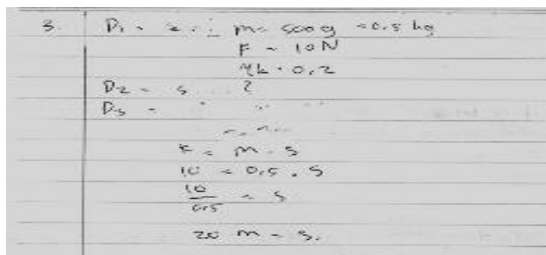 3. D1 = m = 500 g = 0.5 kg
F = 10 N
μk = 0,2
D2 = s ... ?
D3 =
F = m . s
10 = 0,5 . s
10/0,5 = s
20 m = s.